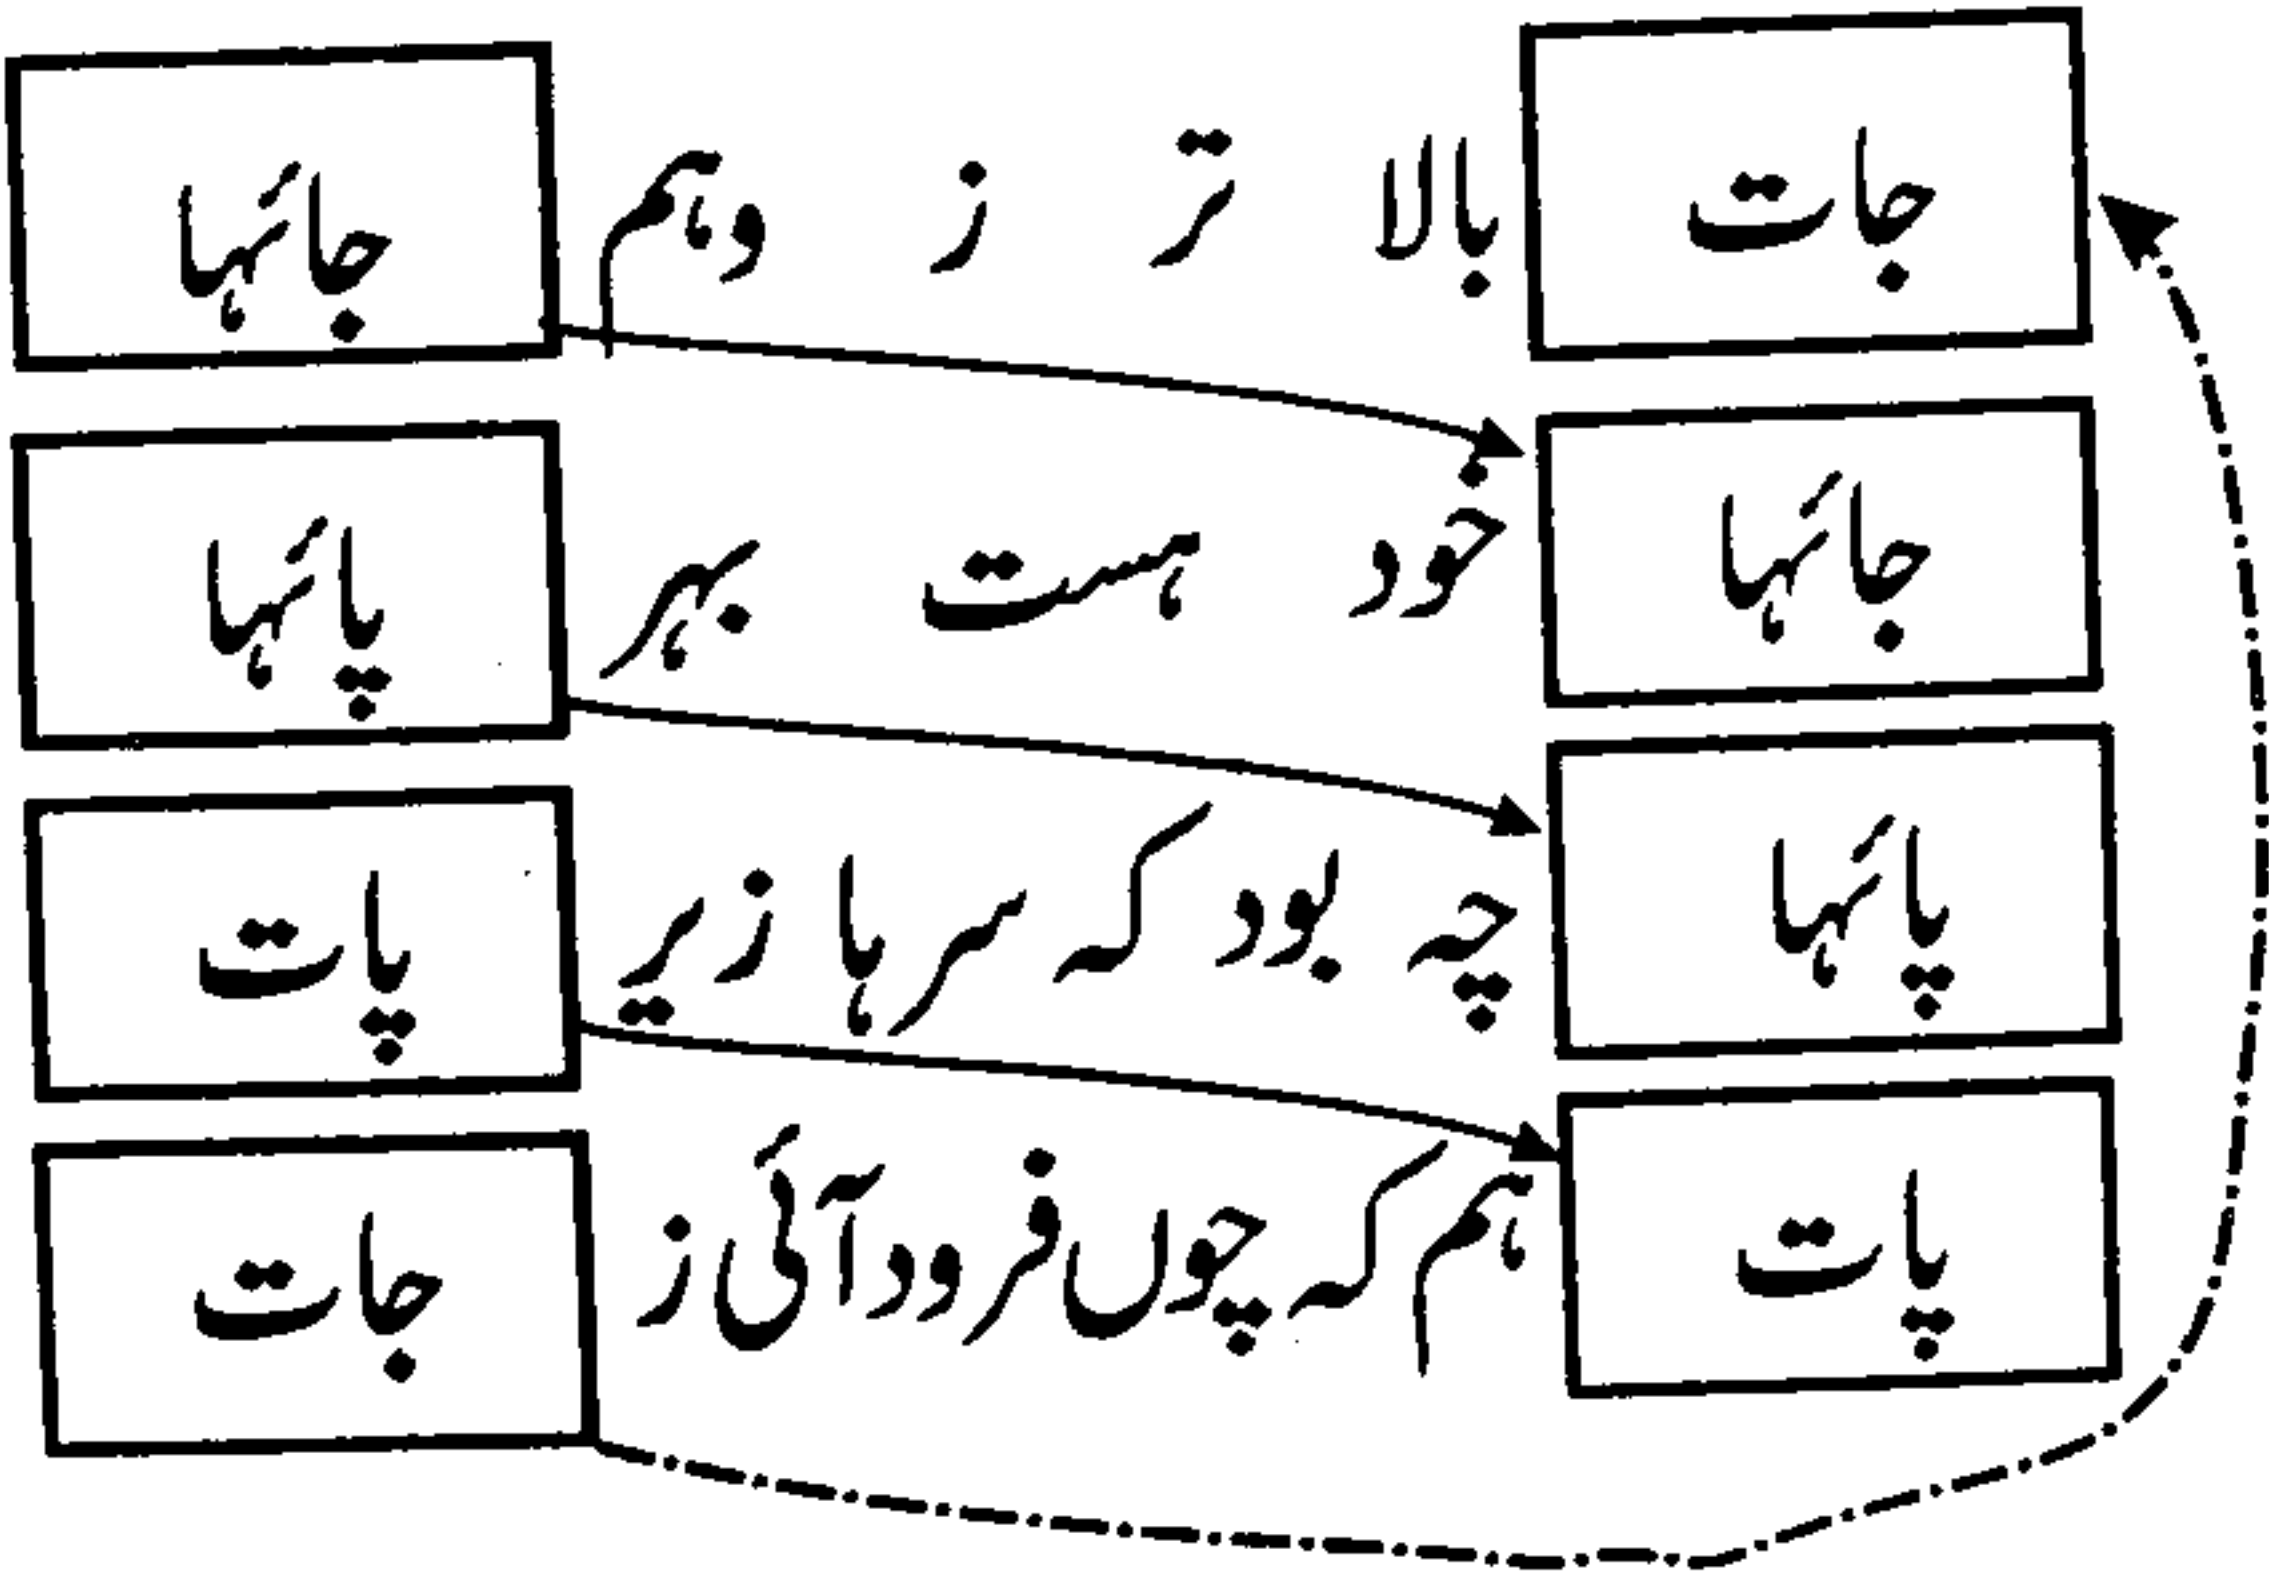 جات بالا تر ز وہم جانہا
جانہا خود ہست بہر پانہا
پانہا چہ بود کہ سرہا زیر پات
پات ہم کہ چوں فرود آئی ز جات